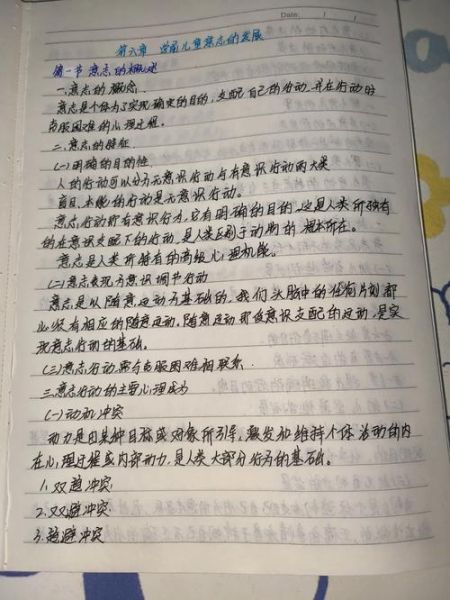 Date: / /
第六章 学前儿童意志的发展
第一节 意志的概述
一.意志的概念
意志是个体为了实现确定的目的,支配自己的行动,并在行动时
克服困难的心理过程。
二.意志的特征
(一)明确的目的性
人的行动可以分为无意识行动与有意识行动两大类
盲目,本能的行动是无意识行动。
意志行动即有意识行为,它有明确的目的,这是人类所独有
的在意识支配下的行动,是人类区别于动物的根本所在。
意志是人类所特有的高级心理机能。
(二)意志表现为意识调节行动
意志是以随意运动为基础的,我们头脑中的任何片刻都
必须有相应的随意运动,随意运动即受意识支配的运动,是实
现意志行动的基础。
(三)意志行动需与克服困难相联系.
三.意志行动的主要心理成分
(一)动机冲突
动力是由某种目标或对象所引导,激发和维持个体活动的内
在心理过程或内部动力,是人类大部分行为的基础。
1.双趋冲突
2.双避冲突
3.趋避冲突